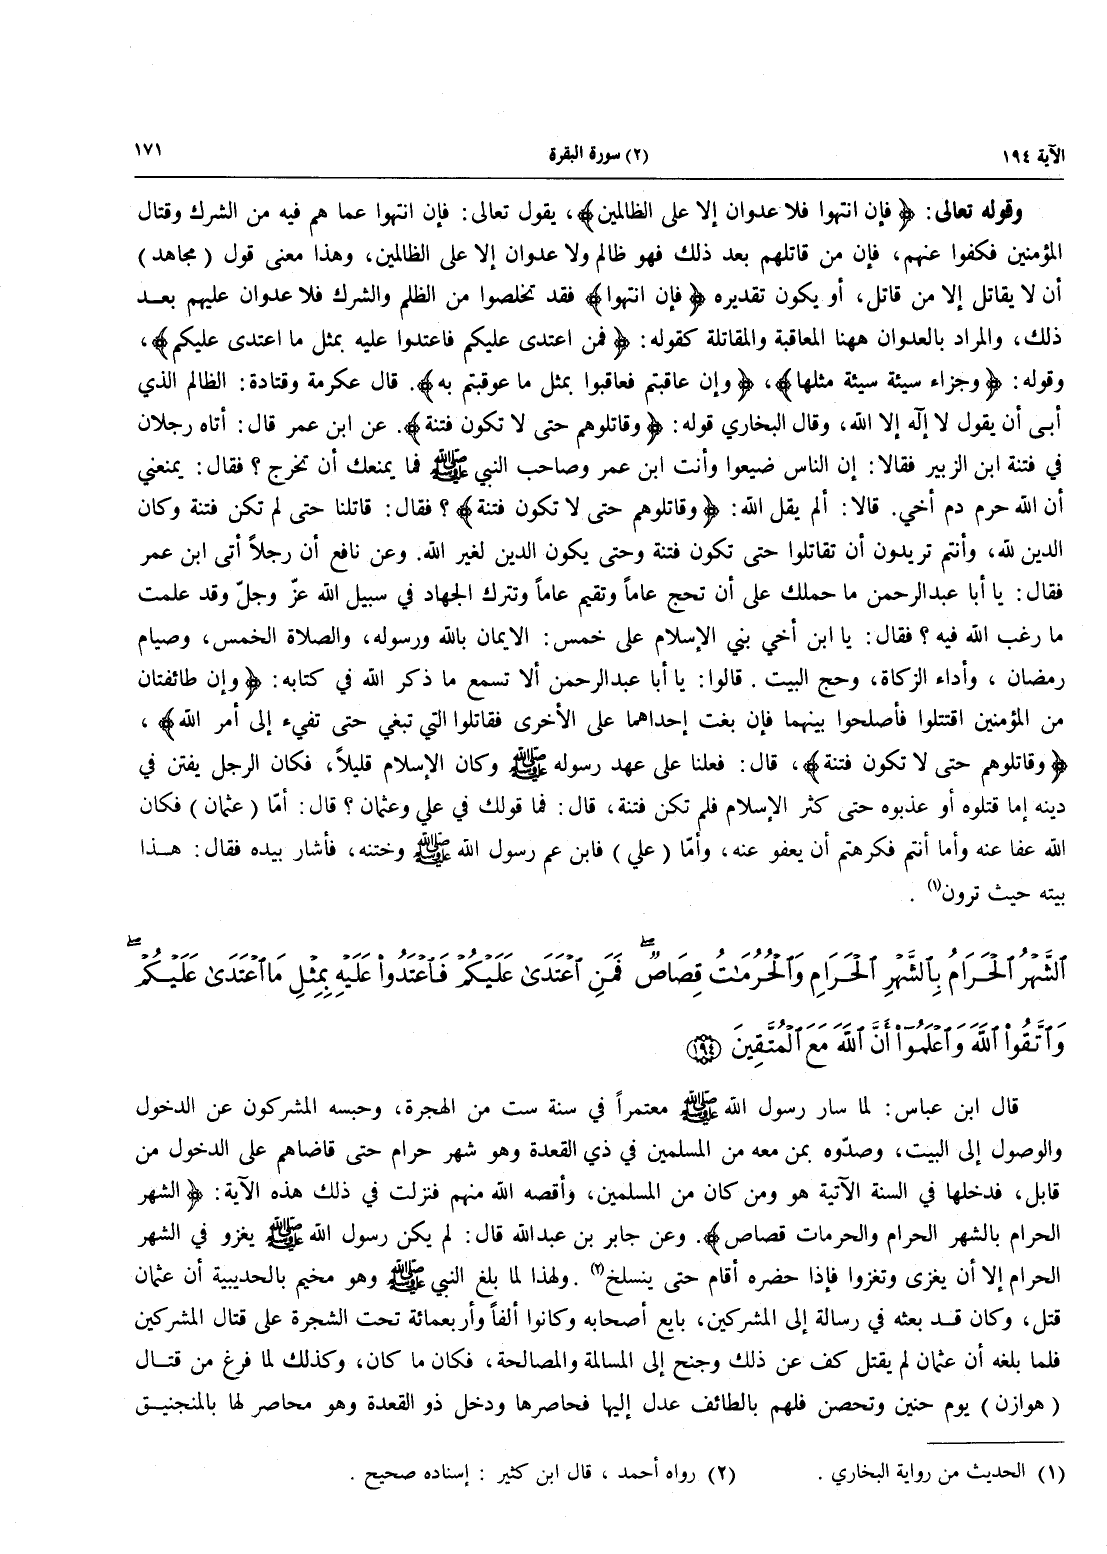 الآية ١٩٤ (٢) سورة البقرة ١٧١
وقوله تعالى: ﴿ فإن انتهوا فلا عدوان إلا على الظالمين﴾، يقول تعالى: فإن انتهوا عما هم فيه من الشرك وقتال
المؤمنين فكفوا عنهم، فإن من قاتلهم بعد ذلك فهو ظالم ولا عدوان إلا على الظالمين، وهذا معنى قول ( مجاهد )
أن لا يقاتل إلا من قاتل، أو يكون تقديره ﴿ فإن انتهوا﴾ فقد تخلصوا من الظلم والشرك فلا عدوان عليهم بعــد
ذلك، والمراد بالعدوان ههنا المعاقبة والمقاتلة كقوله: ﴿ فمن اعتدى عليكم فاعتدوا عليه بمثل ما اعتدى عليكم﴾،
وقوله: ﴿ وجزاء سيئة سيئة مثلها﴾، ﴿ وإن عاقبتم فعاقبوا بمثل ما عوقبتم به﴾. قال عكرمة وقتادة: الظالم الذي
أبـى أن يقول لا إلٓه إلا الله، وقال البخاري قوله: ﴿ وقاتلوهم حتى لا تكون فتنة﴾. عن ابن عمر قال: أتاه رجلان
في فتنة ابن الزبير فقالا: إن الناس ضيعوا وأنت ابن عمر وصاحب النبي ﷺ فما يمنعك أن تخرج ؟ فقال: يمنعني
أن الله حرم دم أخي. قالا: ألم يقل الله: ﴿ وقاتلوهم حتى لا تكون فتنة﴾ ؟ فقال: قاتلنا حتى لم تكن فتنة وكان
الدين لله، وأنتم تريدون أن تقاتلوا حتى تكون فتنة وحتى يكون الدين لغير الله. وعن نافع أن رجلاً أتى ابن عمر
فقال: يا أبا عبدالرحمن ما حملك على أن تحج عاماً وتقيم عاماً وتترك الجهاد في سبيل الله عزّ وجلّ وقد علمت
ما رغب الله فيه ؟ فقال: يا ابن أخي بني الإسلام على خمس: الايمان بالله ورسوله، والصلاة الخمس، وصيام
رمضان ، وأداء الزكاة، وحج البيت . قالوا: يا أبا عبدالرحمن ألا تسمع ما ذكر الله في كتابه: ﴿ وإن طائفتان
من المؤمنين اقتتلوا فأصلحوا بينهما فإن بغت إحداهما على الأخرى فقاتلوا التي تبغي حتى تفيء إلى أمر الله﴾ ،
﴿ وقاتلوهم حتى لا تكون فتنة﴾، قال: فعلنا على عهد رسوله ﷺ وكان الإسلام قليلاً، فكان الرجل يفتن في
دينه إما قتلوه أو عذبوه حتى كثر الإسلام فلم تكن فتنة، قال: فما قولك في علي وعثمان ؟ قال: أمّا ( عثمان ) فكان
الله عفا عنه وأما أنتم فكرهتم أن يعفو عنه، وأمّا ( علي ) فابن عم رسول الله ﷺ وختنه، فأشار بيده فقال: هــذا
بيته حيث ترون(١) .
ٱلشَّهْرُ ٱلْحَرَامُ بِٱلشَّهْرِ ٱلْحَرَامِ وَٱلْحُرُمَٰتُ قِصَاصٌۚ فَمَنِ ٱعْتَدَىٰ عَلَيْكُمْ فَٱعْتَدُوا۟ عَلَيْهِ بِمِثْلِ مَا ٱعْتَدَىٰ عَلَيْكُمْۚ
وَٱتَّقُوا۟ ٱللَّهَ وَٱعْلَمُوٓا۟ أَنَّ ٱللَّهَ مَعَ ٱلْمُتَّقِينَ ۝١٩٤
قال ابن عباس: لما سار رسول الله ﷺ معتمراً في سنة ست من الهجرة، وحبسه المشركون عن الدخول
والوصول إلى البيت، وصدّوه بمن معه من المسلمين في ذي القعدة وهو شهر حرام حتى قاضاهم على الدخول من
قابل، فدخلها في السنة الآتية هو ومن كان من المسلمين، وأقصه الله منهم فنزلت في ذلك هذه الآية: ﴿ الشهر
الحرام بالشهر الحرام والحرمات قصاص﴾. وعن جابر بن عبدالله قال: لم يكن رسول الله ﷺ يغزو في الشهر
الحرام إلا أن يغزى وتغزوا فإذا حضره أقام حتى ينسلخ(٢) .ولهذا لما بلغ النبي ﷺ وهو مخيم بالحديبية أن عثمان
قتل، وكان قــد بعثه في رسالة إلى المشركين، بايع أصحابه وكانوا ألفاً وأربعمائة تحت الشجرة على قتال المشركين
فلما بلغه أن عثمان لم يقتل كف عن ذلك وجنح إلى المسالمة والمصالحة، فكان ما كان، وكذلك لما فرغ من قتــال
( هوازن ) يوم حنين وتحصن فلهم بالطائف عدل إليها فحاصرها ودخل ذو القعدة وهو محاصر لها بالمنجنيــق
(١) الحديث من رواية البخاري . (٢) رواه أحمد ، قال ابن كثير : إسناده صحيح .